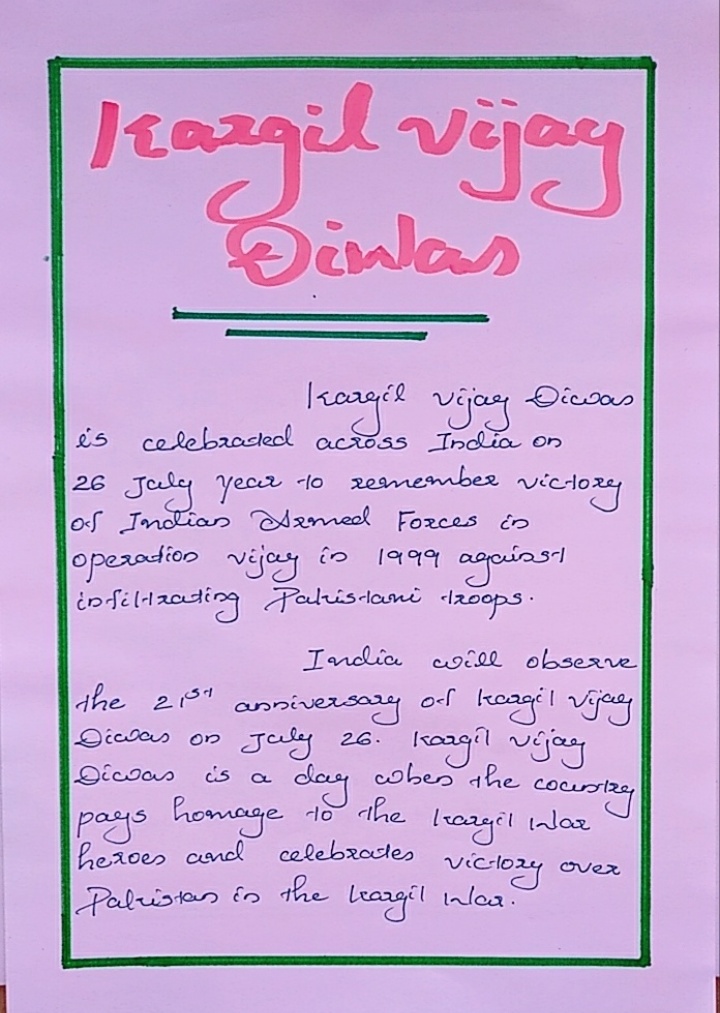 Kargil Vijay
Diwas
Kargil Vijay Diwas
is celebrated across India on
26 July year to remember victory
of Indian Armed Forces in
operation vijay in 1999 against
infiltrating Pakistani troops.
India will observe
the 21st anniversary of Kargil Vijay
Diwas on July 26. Kargil Vijay
Diwas is a day when the country
pays homage to the Kargil War
heroes and celebrates victory over
Pakistan in the Kargil War.